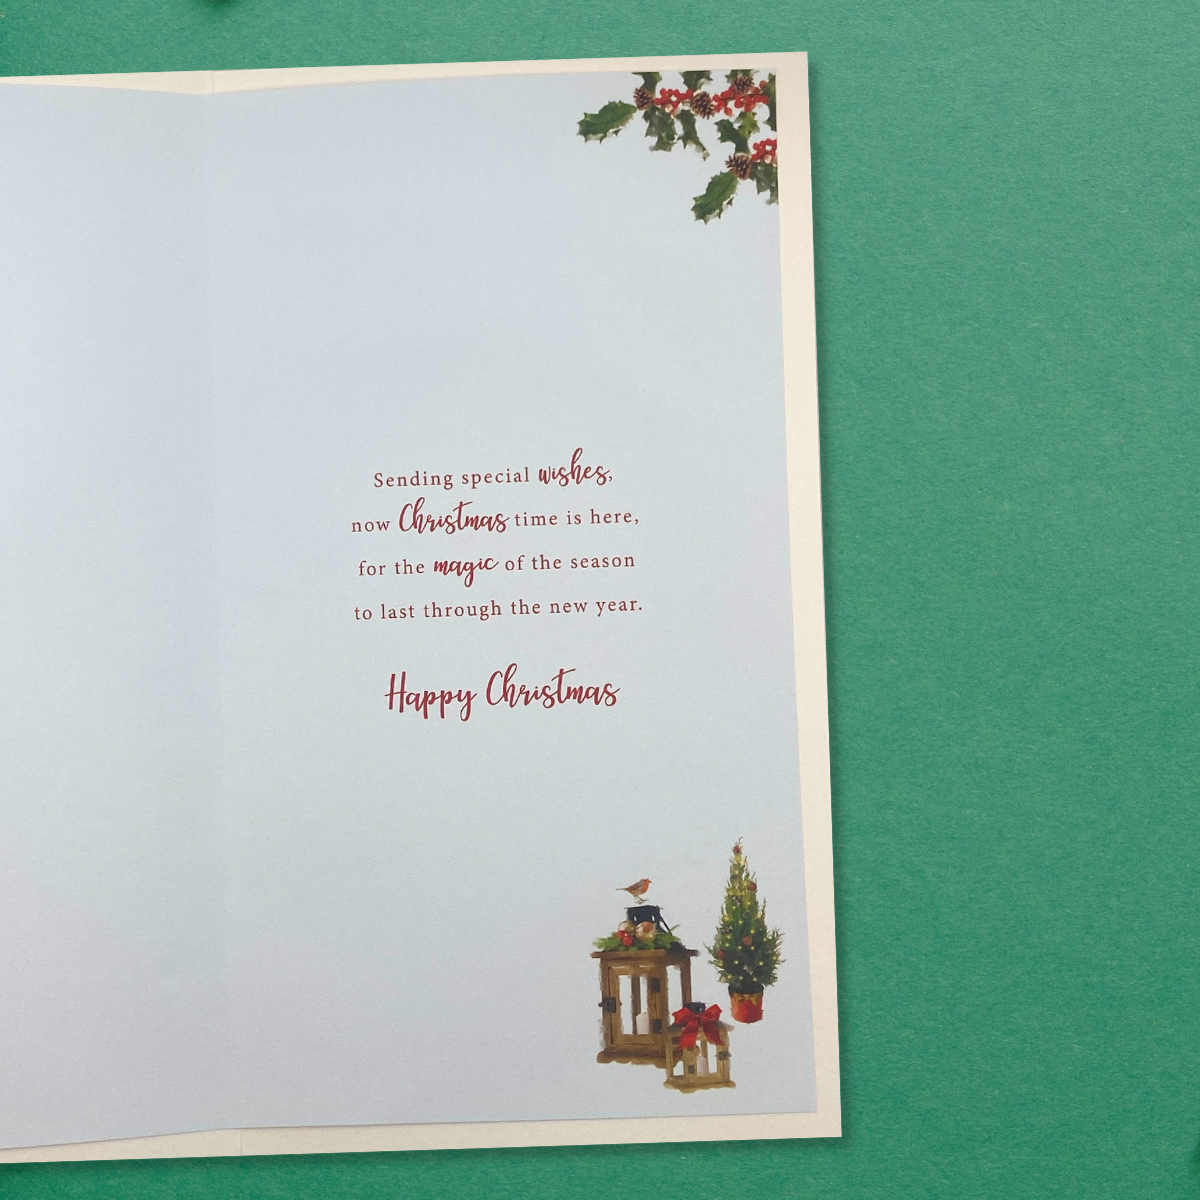 Sending special wishes,
now Christmas time is here,
for the magic of the season
to last through the new year.
Happy Christmas